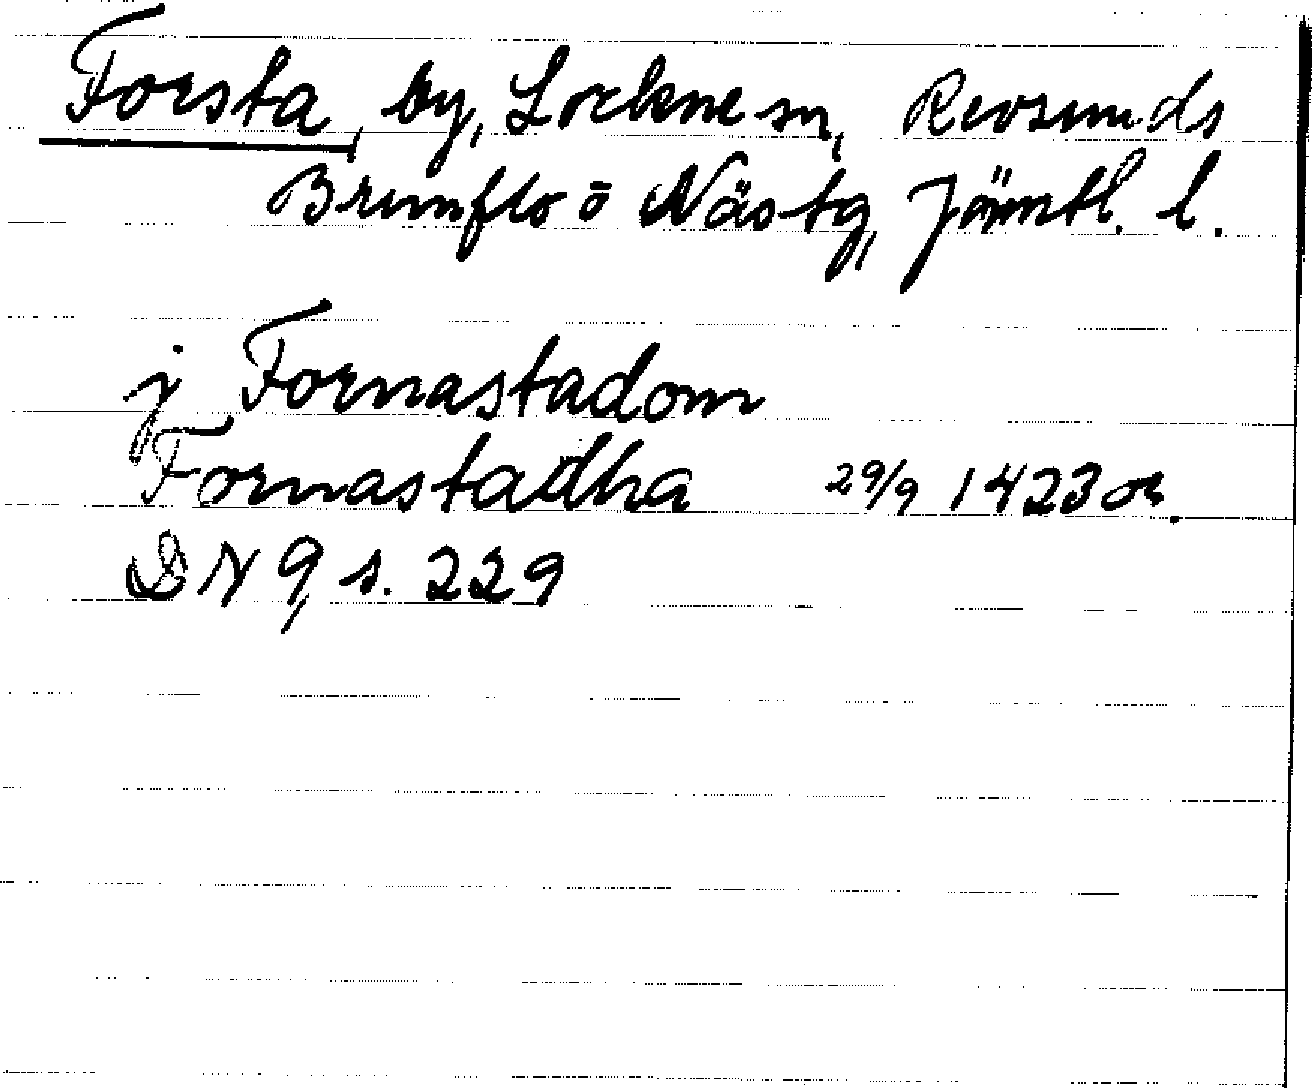 Forsta, by, Lockne sn, Revsunds
Brunflo o Näs tg, Jämtl. l.
j Fornastadom
Fornastadha 29/9 1423 or.
DN 9, s. 229